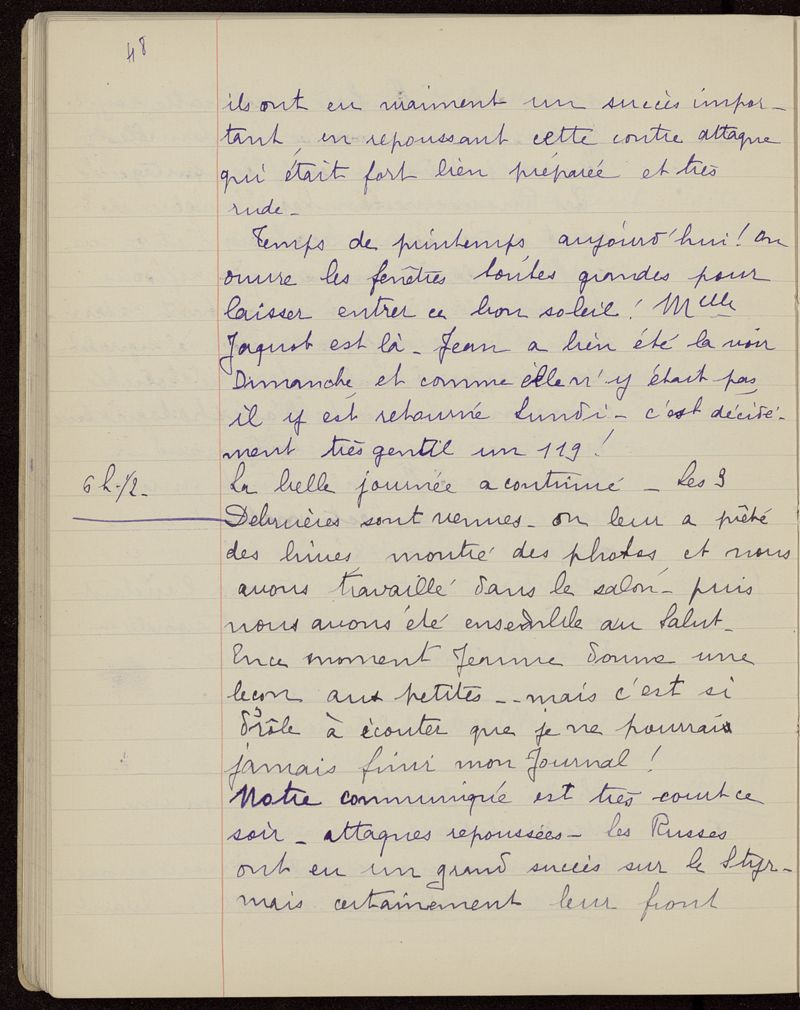 48
ils ont eu vraiment un succès impor-
tant, en repoussant cette contre attaque
qui était fort bien préparée et très
rude -
Temps de printemps aujourd'hui ! on
ouvre les fenêtres toutes grandes pour
laisser entrer ce bon soleil ! Melle
Jaquot est là - Jean a bien été la voir
Dimanche, et comme elle n'y était pas,
il y est retourné Lundi - c'est décidé-
ment très gentil un 119 !
6 h. 1/2 -
La belle journée a continué - Les 3
Debruières sont venues - on leur a prêté
des livres, montré des photos, et nous
avons travaillé dans le salon - puis
nous avons été ensemble au Salut -
En ce moment Jeanne donne une
leçon aux petites - - mais c'est si
drôle à écouter que je ne pourrais
jamais finir mon Journal !
Notre communiqué est très court ce
soir - attaques repoussées - les Russes
ont eu un grand succès sur le Styr -
mais certainement leur front